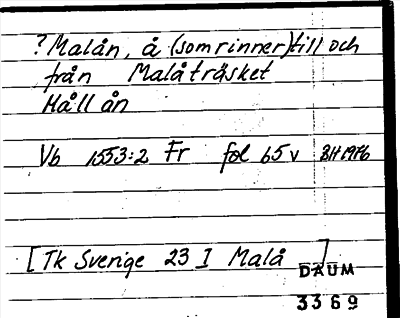 ? Malån, å (som rinner) till och
från Malåträsket
Håll ån
Vb 1553:2 Fr fol 65 v BH 1976
[Tk Sverige 23 I Malå ]
DAUM
3369